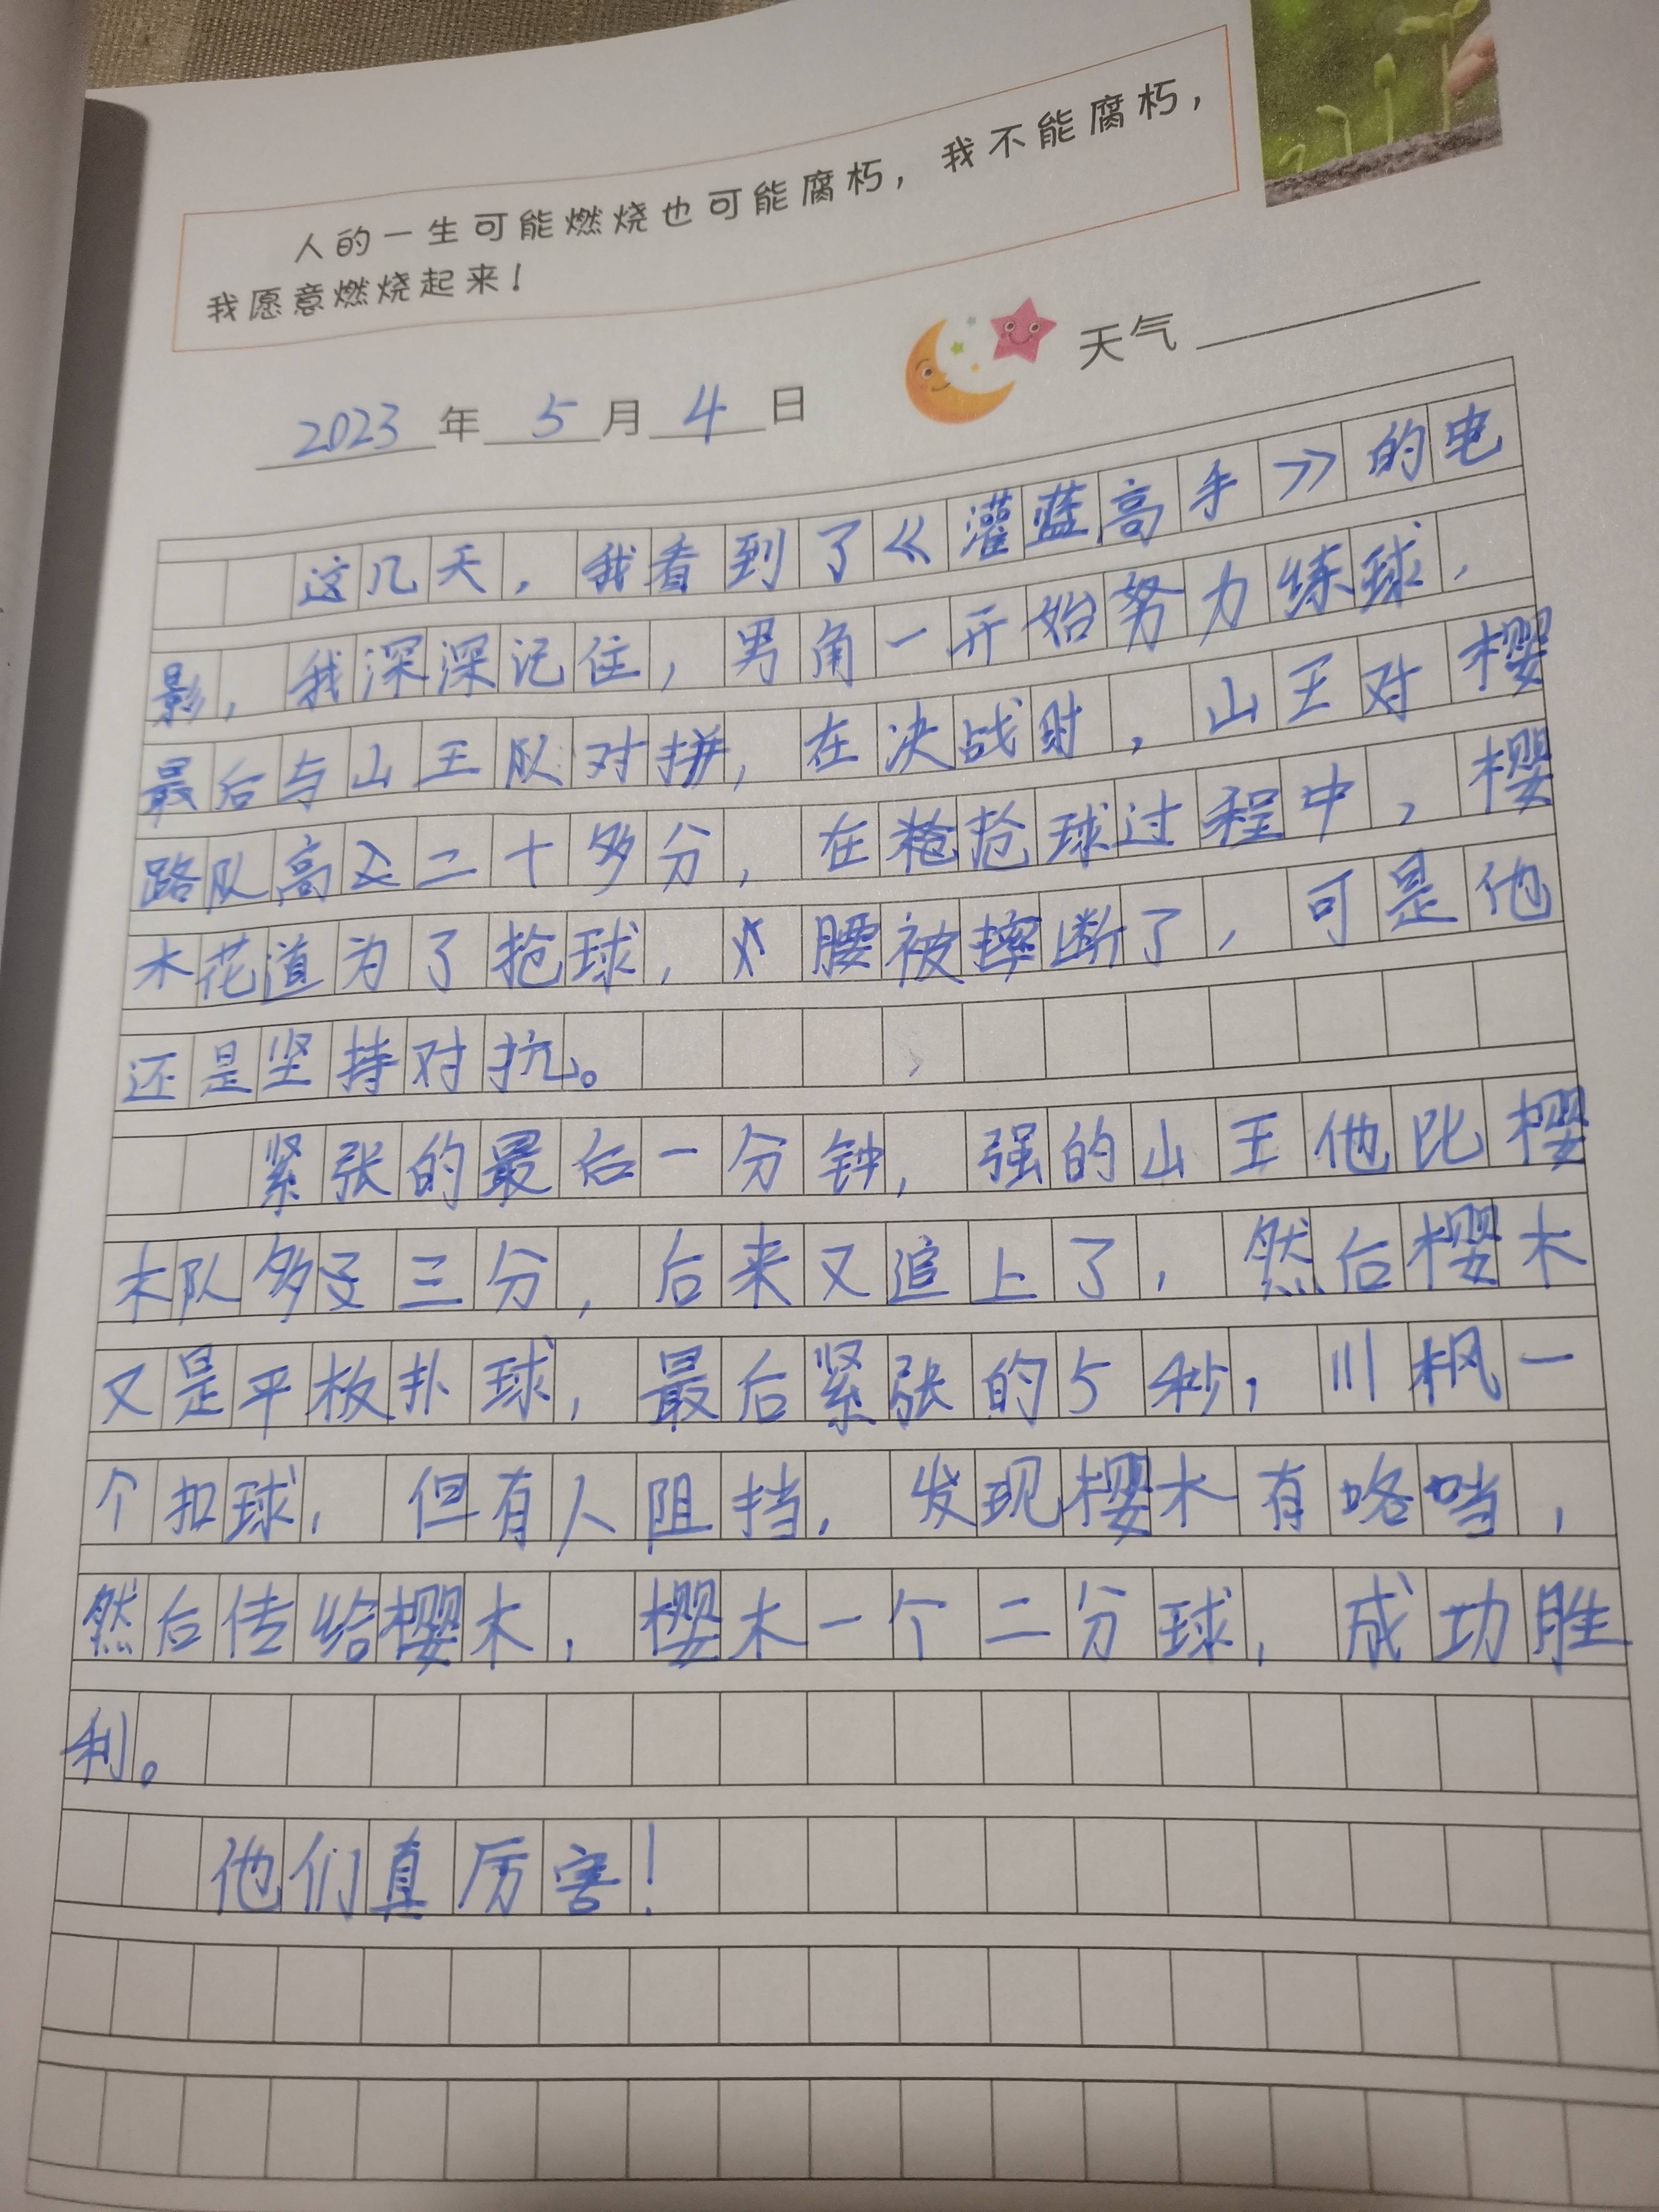 人的一生可能燃烧也可能腐朽，我不能腐朽，
我愿意燃烧起来！
2023年5月4日 天气
这几天，我看到了《灌蓝高手》的电
影，我深深记住，男角一开始努力练球，
最后与山王队对拼，在决战时，山王对樱
路队高二十多分，在抢球过程中，樱
木花道为了抢球，腰被摔断了，可是他
还是坚持对抗。
紧张的最后一分钟，强的山王他比樱
木队多三分，后来又追上了，然后樱木
又是平板扑球，最后紧张的5秒，川枫一
个扣球，但有人阻挡，发现樱木有咯噹，
然后传给樱木，樱木一个二分球，成功胜
利。
他们真厉害！